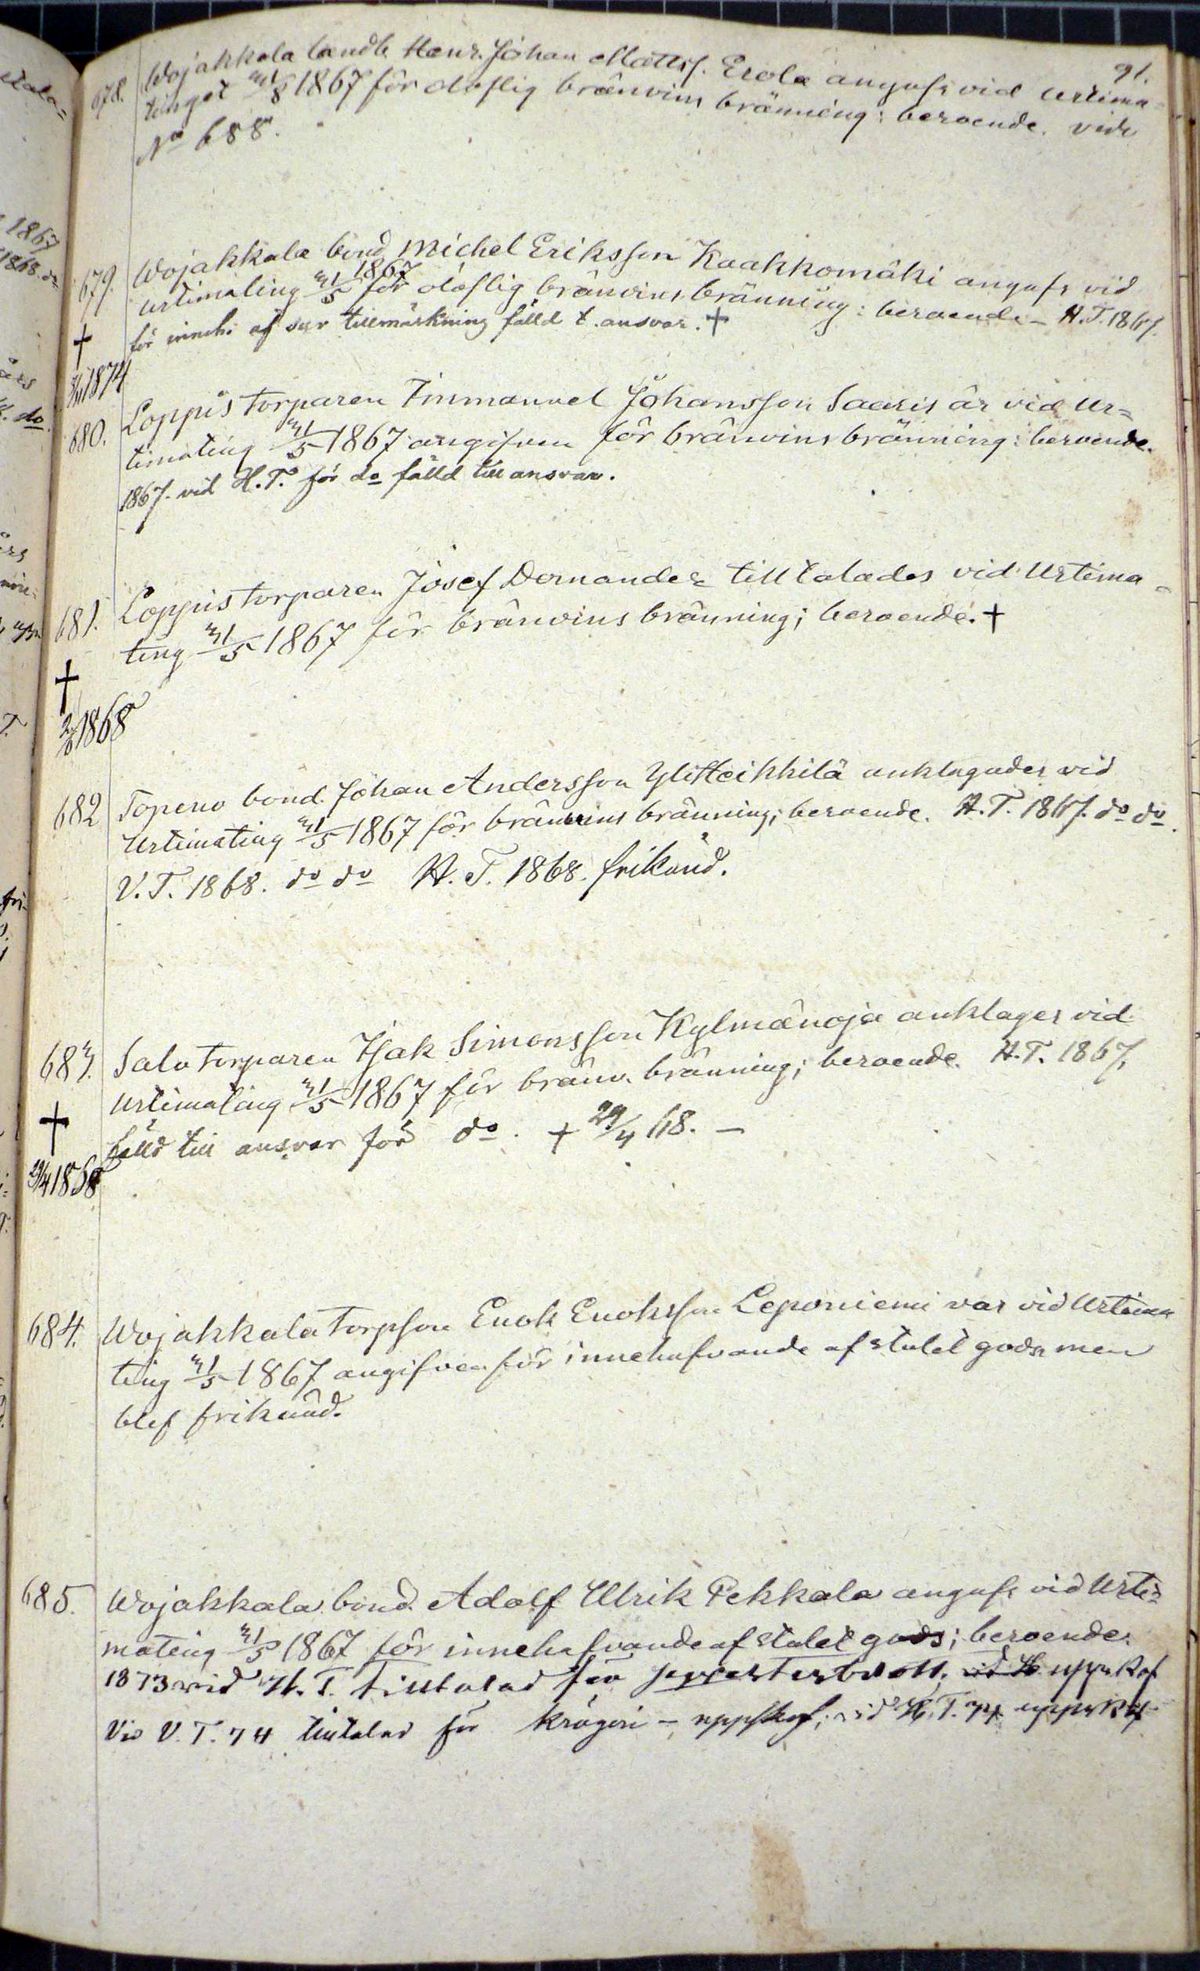 91.
678. Wojakkala landb. Henr. Johan Mattss. Erola angafs vid Urtima-
tinget 31/5 1867 för oloflig bränvins bränning; beroende. vide
No 688.
679. Wojakkala bond. Michel Eriksson Kaakkomäki angafs vid
urtimating 31/5 1867 för oloflig bränvins bränning: beroende - H.T. 1867.
för inneh. af tillmäskning fälld t. ansvar. †
† 1874
680. Loppis torparen Immanuel Johansson Saaris är vid Ur-
timating 31/5 1867 angifven för bränvins bränning: beroende.
1867. vid H.T. för do fälld till ansvar.
681. Loppis torparen Josef Dernander tilltalades vid Urtima-
ting 31/5 1867 för bränvins bränning; beroende. †
† 1868
682 Topeno bond. Johan Andersson Yliheikkilä anklagades vid
Urtimating 31/5 1867 för bränvins bränning; beroende. H.T. 1867. do do.
V.T. 1868. do do H.T. 1868. frikänd.
683. Salo torparen Isak Simonsson Kylmänoja anklages vid
Urtimating 31/5 1867 för bränv. bränning; beroende. H.T. 1867,
fälld till ansvar för do. † 29/4 68. -
† 29/4 1868
684. Wojakkala torpson Enok Enoksson Leponiemi var vid Urtima
ting 31/5 1867 angifven för innehafvande af stulet gods men
blef frikänd.
685. Wojakkala bond. Adolf Ulrik Pekkala angafs vid Urti-
mating 31/5 1867 för innehafvande af stulet gods; beroende.
1873 vid H.T. tilltalad för uppskof
Vid V.T. 74 tilltalad för krögeri - uppskof; vid H.T. 74 uppskof